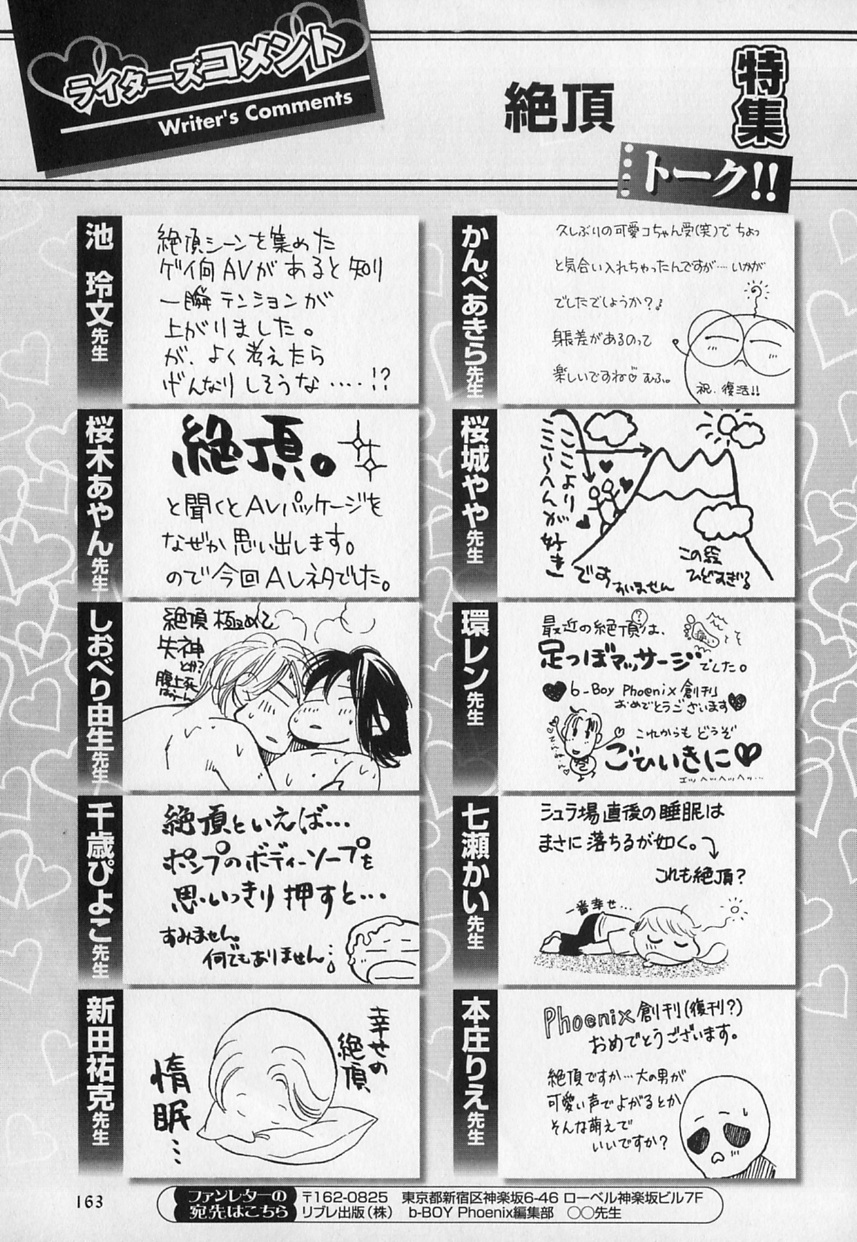 ライターズコメント
Writer's Comments
特集
絶頂
トーク!!
かんべあきら先生
久しぶりの可愛コちゃん受(笑)で ちょっ
と気合い入れちゃったんですが…いかが
でしたでしょうか?♪
身長差があるのって
楽しいですね♡ むふ。
祝・復活!!
池 玲文先生
絶頂シーンを集めた
ゲイ向AVがあると知り
一瞬テンションが
上がりました。
が、よく考えたら
げんなりしそうな……!?
桜城やや先生
ここより
ここらへんが
好き
です
すいません
この絵
ひどすぎる
桜木あやん先生
絶頂。
と聞くとAVパッケージを
なぜか思い出します。
ので今回AVネタでした。
環レン先生
最近の絶頂は、?
足つぼマッサージでした。
♥b-Boy Phoenix創刊
おめでとうございます♥
これからも どうぞ
ごひいきに♥
エッヘッヘッヘッ…
しおべり由生先生
絶頂 極めて
失神
とか?
腹上死
七瀬かい先生
シュラ場直後の睡眠は
まさに落ちるが如く。
これも絶頂?
一番幸せ…
千歳ぴよこ先生
絶頂といえば…
ポンプのボディーソープを
思いっきり押すと…
すみません
何でもありません。
本庄りえ先生
Phoenix創刊(復刊?)
おめでとうございます。
絶頂ですか…大の男が
可愛い声でよがるとか
そんな萌えで
いいですか?
新田祐克先生
幸せの
絶頂
惰眠…
163
ファンレターの
宛先はこちら
〒162-0825 東京都新宿区神楽坂6-46 ローベル神楽坂ビル7F
リブレ出版(株) b-BOY Phoenix編集部 ○○先生